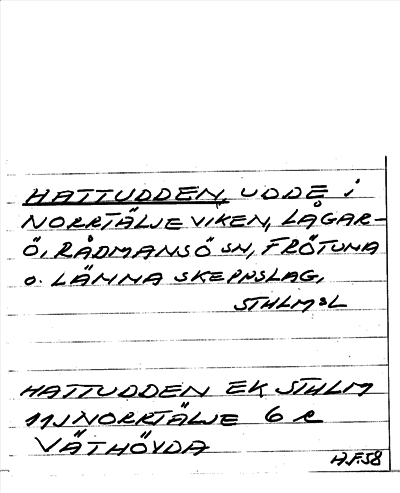 HATTUDDEN, UDDE i
NORRTÄLJEVIKEN, LÅGAR-
Ö, RÅDMANSÖ SN, FRÖTUNA
o. LÄNNA SKEPPSLAG,
STHLMSL
HATTUDDEN EK STHLM
11J NORRTÄLJE 6 C
VÄTHÖVDA
A.F.58